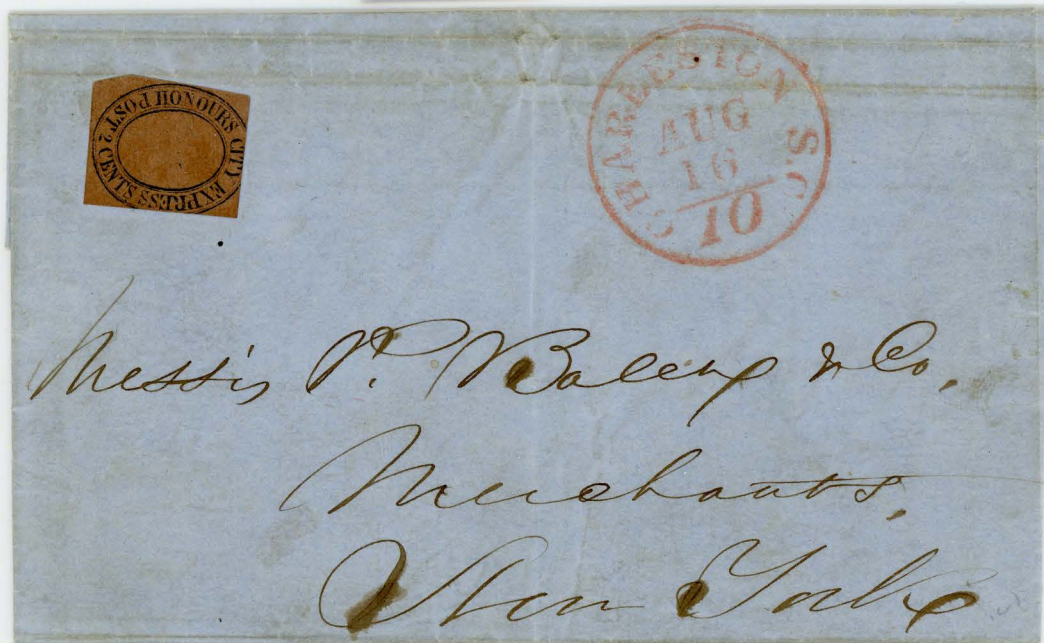 HONOURS CITY EXPRESS POST 2 CENTS
CHARLESTON S.C.
AUG
16
10
Messrs P. & Co.
Merchants,
New York